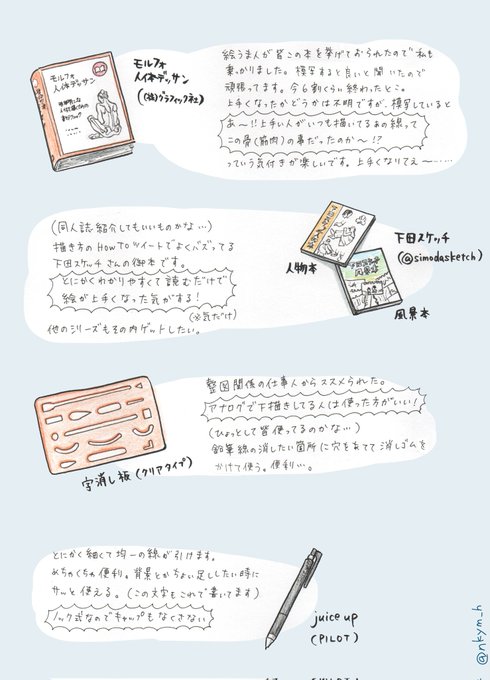 モルフォ
人体デッサン
モルフォ
人体デッサン
((株)グラフィック社)
絵うまんが皆この本を挙げておられたので私も
乗っかりました。模写すると良いと聞いたので
頑張ってます。今6割くらい終わったとこ。
上手くなったかどうかは不明ですが、模写していると
あ〜!!上手い人がいつも描いてるあの線って
この骨(筋肉)の事だったのか〜!?
っていう気付きが楽しいです。上手くなりてえ〜……
(同人誌紹介してもいいものかな…)
描き方のHOWTOツイートでよくバズってる
下田スケッチさんの御本です。
とにかくわかりやすくて読むだけで
絵が上手くなった気がする!
(※気だけ)
他のシリーズもその内ゲットしたい。
人物本
下田スケッチ
(@simodasketch)
風景本
整図関係の仕事人からススメられた。
アナログで下描きしてる人は使った方がいい!
(ひょっとして皆使ってるのかな…)
鉛筆線の消したい箇所に穴をあてて消しゴムを
かけて使う。便利…。
字消し板(クリアタイプ)
とにかく細くて均一の線が引けます。
めちゃくちゃ便利。背景とかちょい足ししたい時に
サッと使える。(この文字もこれで書いてます)
ノック式なのでキャップもなくさない
juice up
(PILOT)
@nkym_h